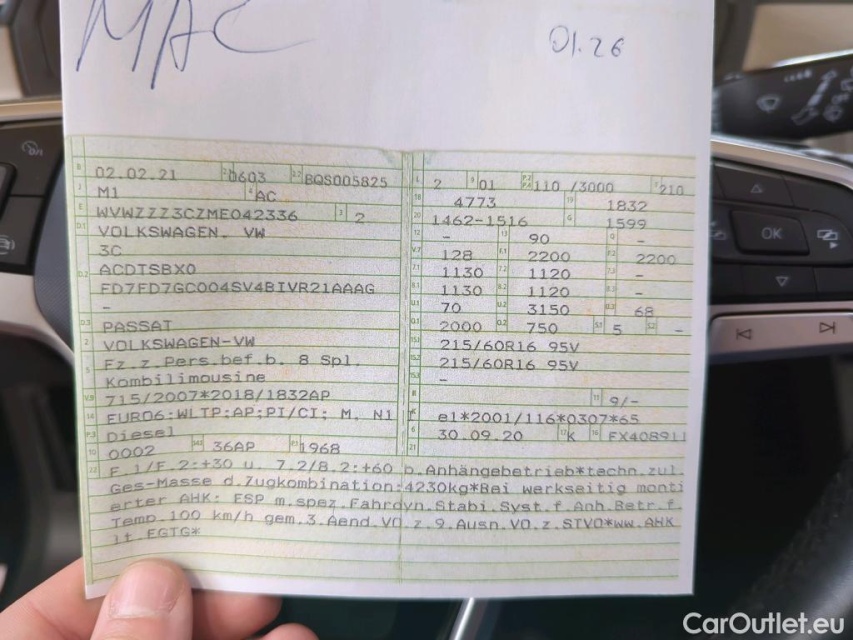 MAC
01.26
B 02.02.21 0603 BQS005825
J M1 4 AC
E WVWZZZ3CZME042336 3 2
D.1 VOLKSWAGEN. VW
3C
D.2 ACDTSBX0
FD7FD7GC004SV4BIVR21AAAG
-
D.3 PASSAT
2 VOLKSWAGEN-VW
5 Fz.z.Pers.bef.b. 8 Spl.
Kombilimousine
V.9 715/2007*2018/1832AP
14 EURO6;WLTP;AP;PI/CI; M, N1 I
P.3 Diesel
10 0002 14.1 36AP P.1 1968
L 2 9 01 P.2/P.4 110 /3000 T 210
18 4773 19 1832
20 1462-1516 G 1599
12 - 13 90 Q -
V.7 128 F.1 2200 F.2 2200
7.1 1130 7.2 1120 7.3 -
8.1 1130 8.2 1120 8.3 -
U.1 70 U.2 3150 U.3 68
O.1 2000 O.2 750 S.1 5 S.2 -
15.1 215/60R16 95V
15.2 215/60R16 95V
15.3 -
R 11 9/-
K e1*2001/116*0307*65
6 30.09.20 17 K 16 FX40891
21
22 F.1/F.2:+30 u. 7.2/8.2:+60 b.Anhängebetrieb*techn.zul.
Ges-Masse d.Zugkombination:4230kg*Bei werkseitig monti
erter AHK: ESP m.spez.Fahrdyn.Stabi.Syst.f.Anh.Betr.f.
Temp.100 km/h gem.3.Aend.VO.z.9.Ausn.VO.z.STVO*ww.AHK
lt.EGTG*
OK
CarOutlet.eu